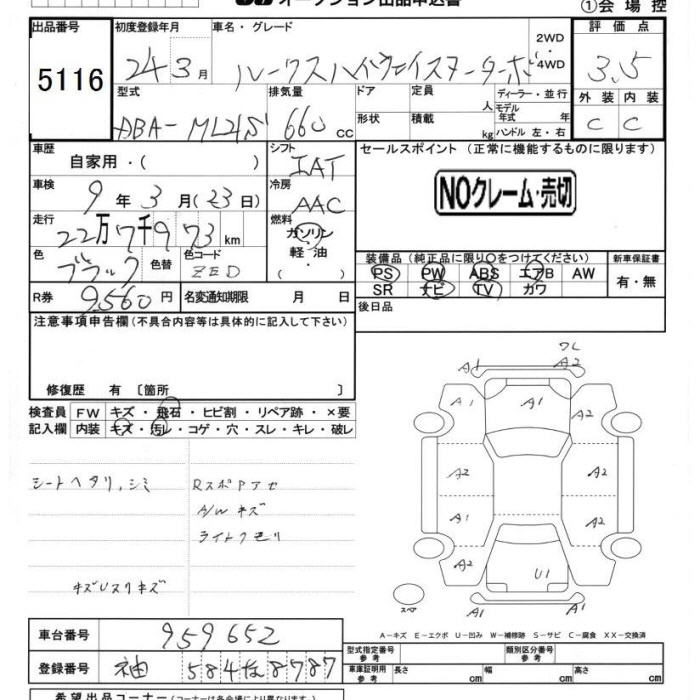 オークション出品申込書
①会場控
出品番号 初度登録年月 車名・グレード 2WD・4WD 評価点
5116 24年3月 ルークスハイウェイスターターボ 3.5
型式 排気量 ドア 定員 人 ディーラー・並行 外装 内装
DBA-ML21S 660cc 形状 積載 kg モデル年式 年 ハンドル 左・右 C C
車歴 自家用・( ) シフト IAT セールスポイント (正常に機能するものに限ります)
車検 9年3月(23日) 冷房 AAC NOクレーム・売切
走行 22万7千973km 燃料 ガソリン・軽油・
色 ブラック 色替 色コード ZED 装備品(純正品に限り○をつけてください) 新車保証書
PS PW ABS エアB AW 有・無
R券 9,560円 名変通知期限 月 日 SR ナビ TV カワ
注意事項申告欄(不具合内容等は具体的に記入して下さい) 後日品
修復歴 有 〔箇所 〕
検査員 FW キズ・飛石・ヒビ割・リペア跡・×要
記入欄 内装 キズ・汚レ・コゲ・穴・スレ・キレ・破レ
シートヘタリ,シミ RスポPアセ
A/Wキズ
ライトクモリ
キズUスリキズ
ワレ
A1 A2
A1 A1 A2
A2 A2
A1 A2
A2 U1 A2
スペア A1 A1
A-キズ E-エクボ U-凹み W-補修跡 S-サビ C-腐食 XX-交換済
車台番号 959652
型式指定番号 参考 類別区分番号 参考
登録番号 袖 584な8787 車庫証明用 参考 長さ cm 幅 cm 高さ cm
希望出品コーナー(コーナーは各会場により異なります)